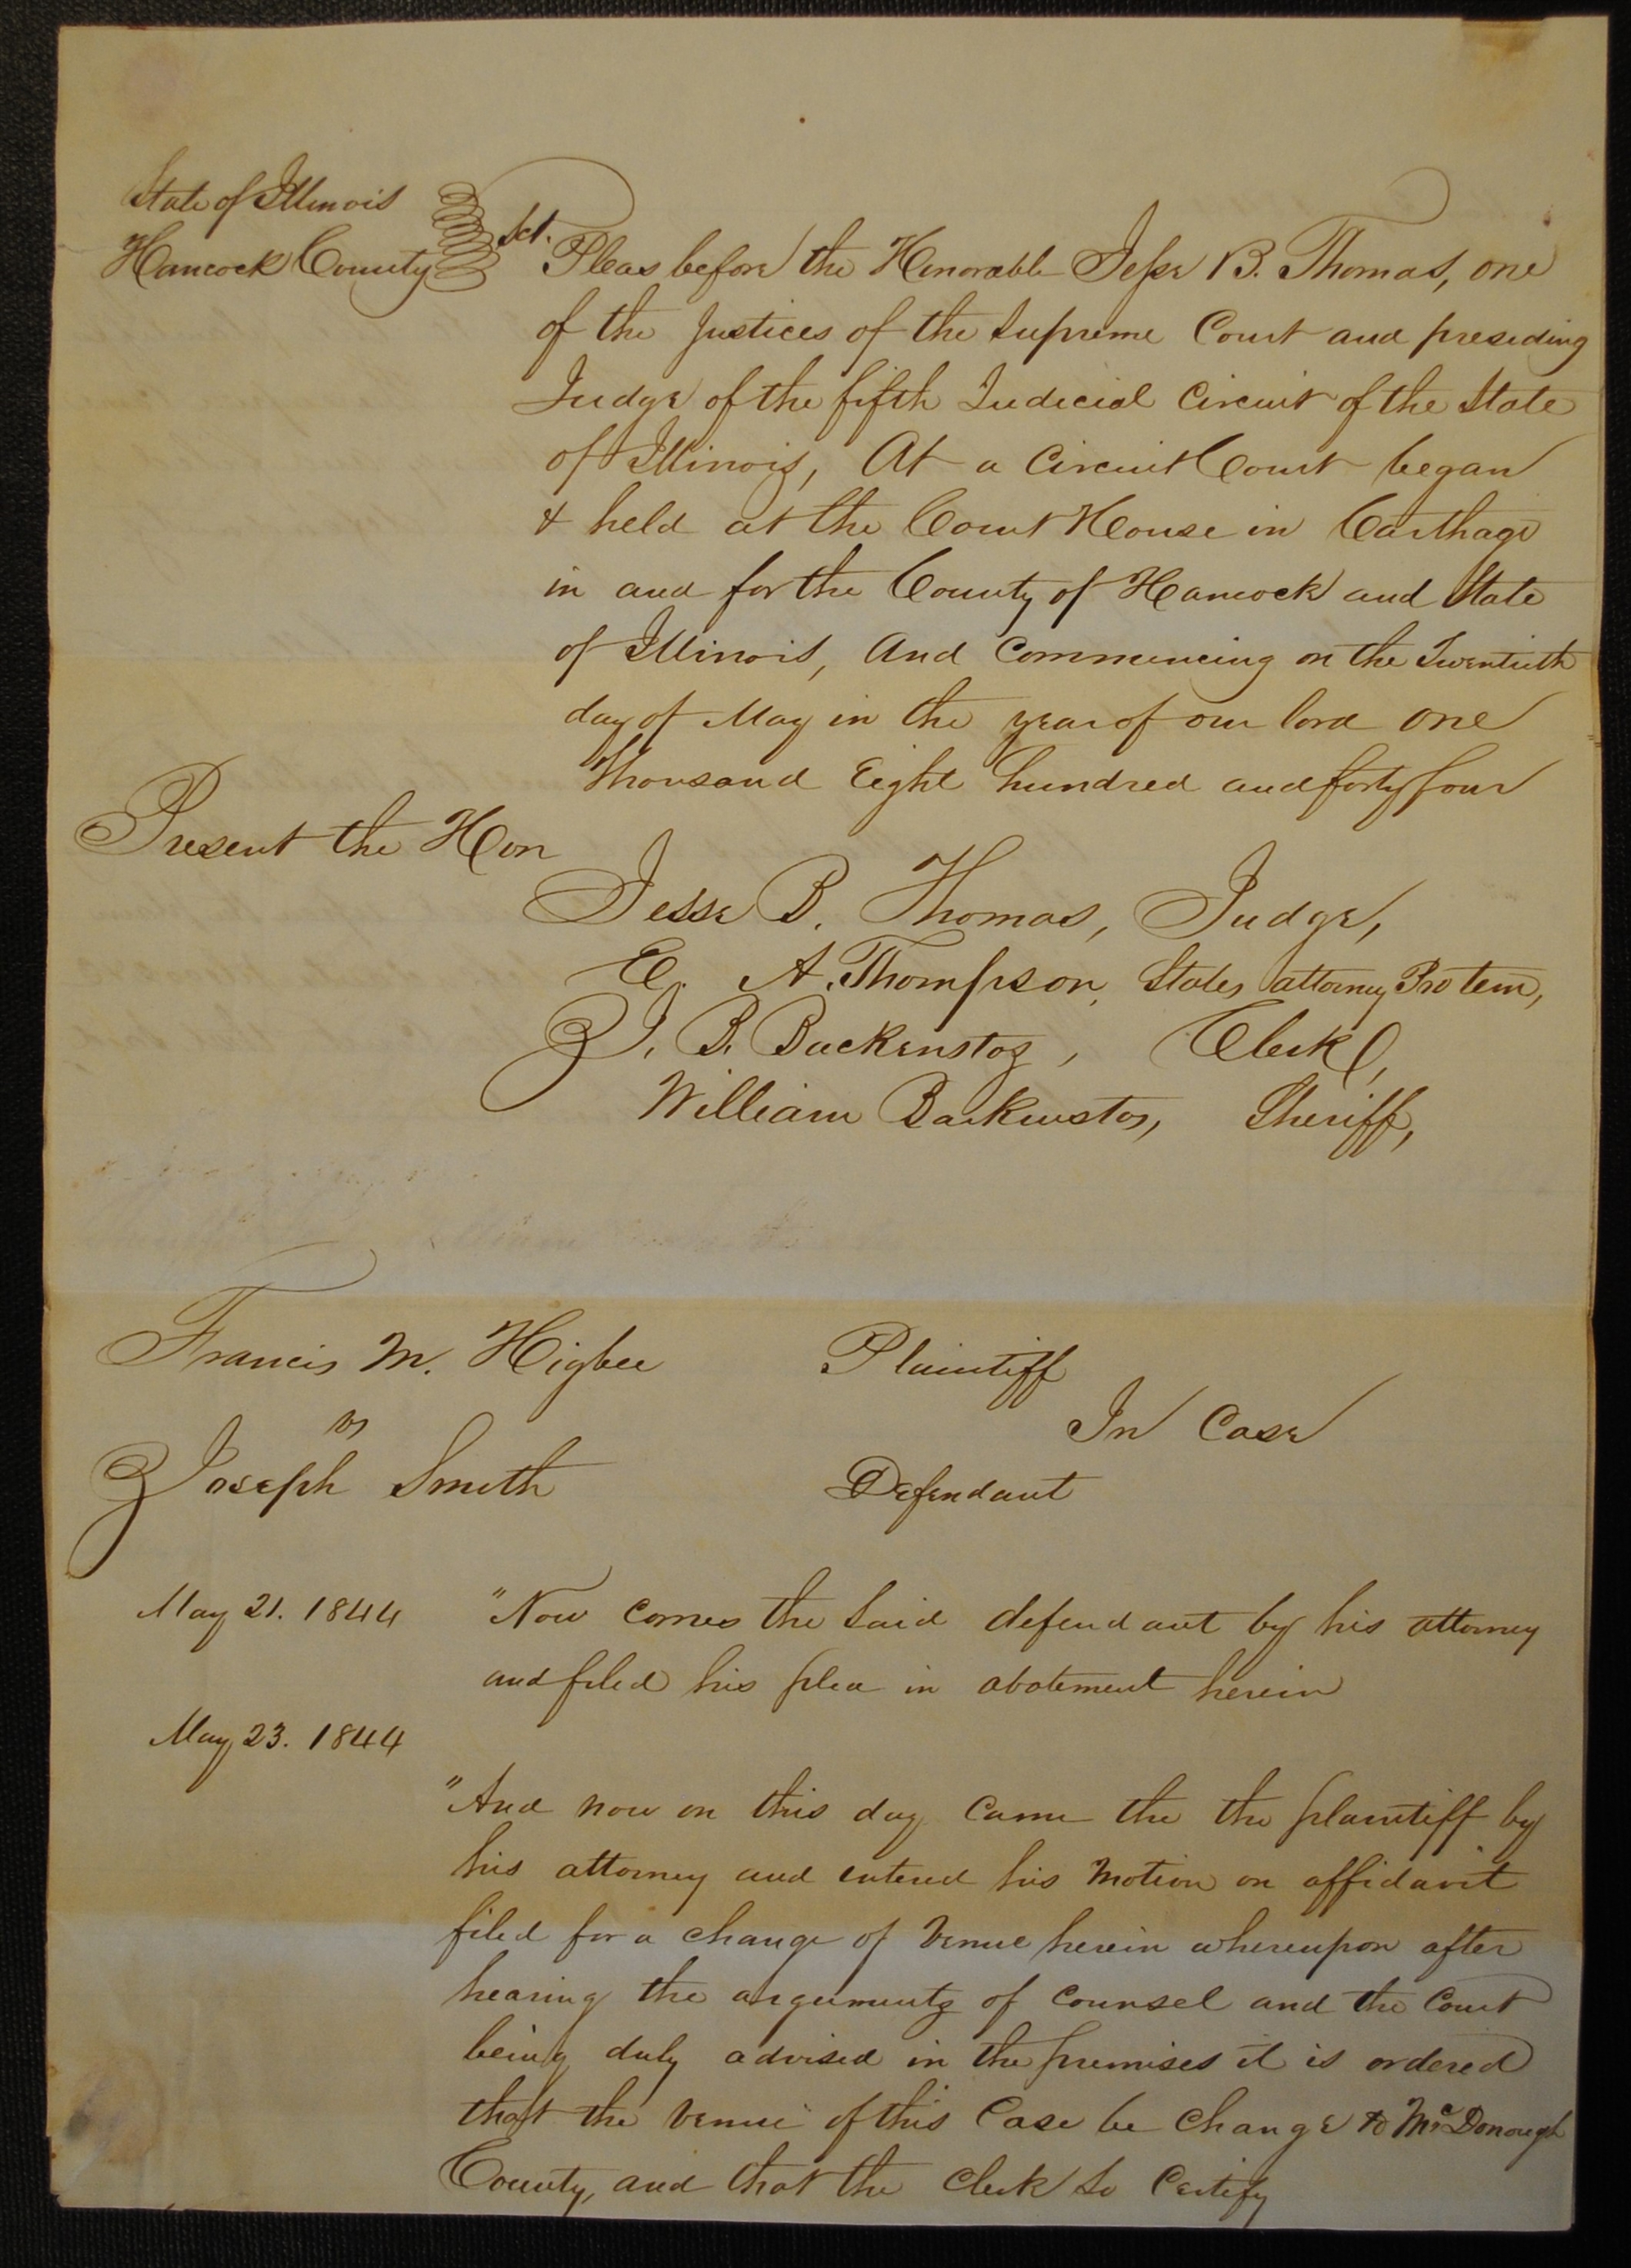 State of Illinois
Hancock County Sct.
Pleas before the Honorable Jesse B. Thomas, one
of the Justices of the Supreme Court and preseding
Judge of the fifth Judicial Circuit of the State
of Illinois, At a Circuit Court began
& held at the Court House in Carthage
in and for the County of Hancock and State
of Illinois, And Commencing on the Twentieth
day of May in the year of our lord one
Thousand Eight hundred and forty four
Present the Hon
Jesse B. Thomas, Judge,
E. A. Thompson, States attorney Protem,
J. B. Backenstos, Clerk,
William Backenstos, Sheriff,
Francis M. Higbee Plaintiff
vs In Case
Joseph Smith Defendant
May 21. 1844 "Now comes the Said defendant by his attorney
and filed his plea in abatement herein
May 23. 1844
"And now on this day Came the the plaintiff by
his attorney and entered his Motion on affidavit
filed for a change of Venue herein whereupon after
hearing the arguments of Counsel and the Court
being duly advised in the premises it is ordered
that the venue of this Case be Change to McDonough
County, and that the clerk so Certify